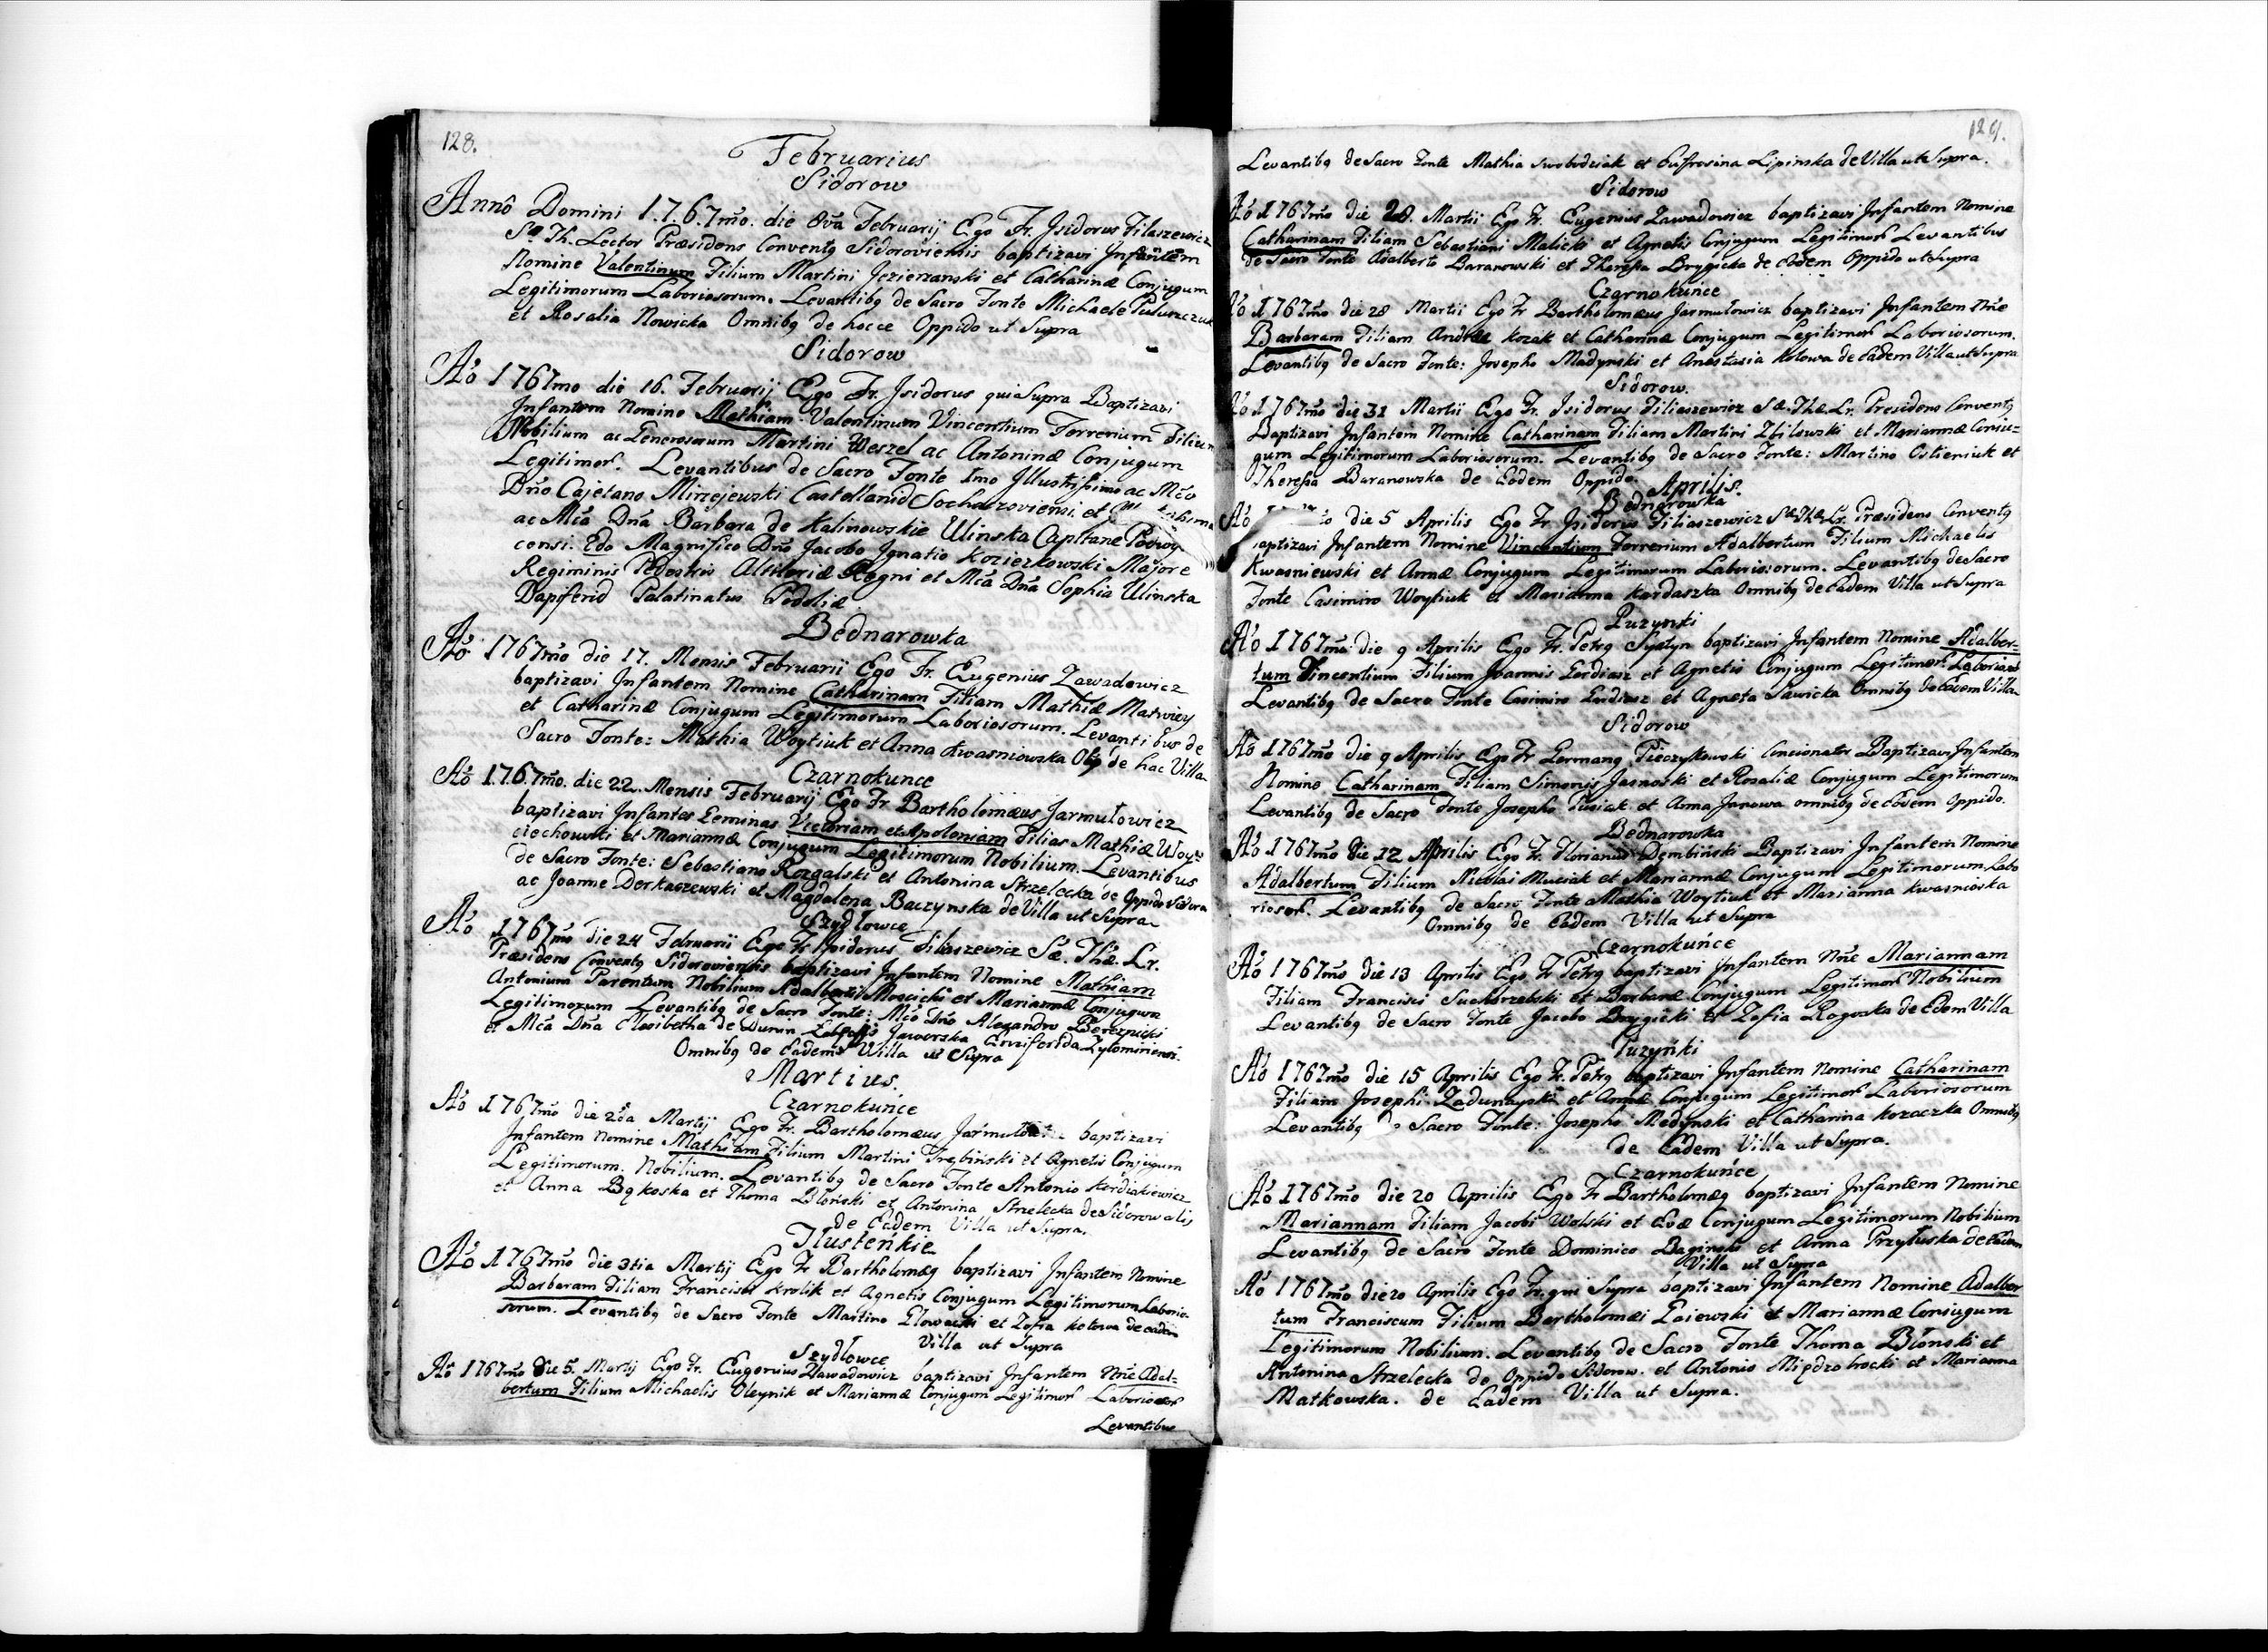 128.
Februarius
Sidorow
Annô Domini 1.7.6.7mo. die 8va Februarij Ego Fr. Isidorus Filaszewicz
Sae Th. Lector Præsidens Conventq Sidoroviensis baptizavi Infantem
Nomine Valentinum Filium Martini Jezierzanski et Catharinæ Conjugum
Legitimorum Laboriosorum. Levantibq de Sacro Fonte Michaele
et Rosalia Nowicka Omnibq de hocce Oppido ut Supra
Sidorow
Ao 1767mo die 16. Februarij Ego Fr. Isidorus qui Supra Baptizavi
Infantem Nomine Mathiam Valentinum Vincentium Ferrerium Filium
Nobilium ac Generosorum Martini Weszel ac Antoninæ Conjugum
Legitimor. Levantibus de Sacro Fonte Imo Illustrissimo ac Mco
Dno Cajetano Mirzejewski Castellanid Sochaczoviensi et
ac Mca Dna Barbara de Kalinowskie Ulinska Capitane
censi. 2do Magnifico Dno Jacobo Ignatio Kozierkowski Majore
Regiminis Pedestris Regni et Mca Dna Sophia Ulinska
Dapiferid Palatinatus Podoliæ
Bednarowka
Ao 1767mo die 17. Mensis Februarii Ego Fr. Eugenius Zawadowicz
baptizavi Infantem Nomine Catharinam Filiam Mathiæ Matwiey
et Catharinæ Conjugum Legitimorum Laboriosorum. Levantibus de
Sacro Fonte: Mathia Woytiuk et Anna Kwasniowska de hac Villa
Czarnokunce
Ao 1767mo. die 22. Mensis Februarij Ego Fr. Bartholomæus Jarmułowicz
baptizavi Infantes Gemunas Victoriam et Apoloniam Filias Mathiæ Woy=
ciechowski et Mariannæ Conjugum Legitimorum Nobilium. Levantibus
de Sacro Fonte: Sebastiano Rozgalski et Antonina Strzelecka de Oppido Sidorow
ac Joanne Derkaczewski et Magdalena Baczynska de Villa ut Supra
Szydłowce
Ao 1767mo die 24 Februarii Ego Fr Isidorus Filaszewicz Sæ. Thæ. Lr.
Præsidens Conventq Sidoroviensis baptizavi Infantem Nomine Mathiam
Antonium Parentum Nobilium Adalberti Moscicki et Mariannæ Conjugum
Legitimorum Levantibq de Sacro Fonte: Mco Dno Alexandro Bereznicki
et Mca Dna Elisibetha de Dunin Jaworska Ensiferida Zytominiensi.
Omnibq de Eadem Villa ut Supra
Martius.
Czarnokuńce
Ao 1767mo die 2da Martij Ego Fr. Bartholomæus baptizavi
Infantem Nomine Mathiam Filium Martini Trębiński et Agnetis Conjugum
Legitimorum. Nobilium. Levantibq de Sacro Fonte Antonio Kordiakiewicz
et Anna Bąkoska et Thoma Błoński et Antonina Strzelecka de Sidorow alis
de Eadem Villa ut Supra.
Tłusteńkie
Ao 1767mo die 3tia Martij Ego Fr Bartholomæq baptizavi Infantem Nomine
Barbaram Filiam Francisci Krolik et Agnetis Conjugum Legitimorum Laborio=
sorum. Levantibq de Sacro Fonte Martino Głowacki et Zofia Kotowa de eadem
Villa ut Supra
Szydłowce
Ao 1767mo die 5. Martij Ego Fr. Eugenius Zawadowicz baptizavi Infantem Nne Adal=
bertum Filium Michaelis Oleynik et Mariannæ Conjugum Legitimor Laboriosor
Levantibus
129.
Levantibq de Sacro Fonte Mathia Swobodziak et Eufrosina Lipinska de Villa ut Supra.
Sidorow
Ao 1767mo die 28. Martii Ego Fr. Eugenius Zawadowicz baptizavi Infantem Nomine
Catharinam Filiam Sebastiani Malicki et Agnetis Conjugum Legitimor Levantibus
de Sacro Fonte Adalberto Baranowski et Theresia Brygicka de eodem Oppido ut Supra
Czarnokuńce
Ao 1767mo die 28 Martii Ego Fr Bartholomæus Jarmułowicz baptizavi Infantem Nne
Barbaram Filiam Andreæ Kozak et Catharinæ Conjugum Legitimor Laboriosorum.
Levantibq de Sacro Fonte: Josepho Madynski et Anastasia Kotowa de eadem Villa ut Supra
Sidorow.
Ao 1767mo die 31 Martii Ego Fr. Isidorus Filiaszewicz Sæ. Thæ Lr. Presidens Conventq
Baptizavi Infantem Nomine Catharinam Filiam Martini Zbilowski et Mariannæ Conju=
gum Legitimorum Laboriosorum. Levantibq de Sacro Fonte: Martino Ostieniuk et
Theresia Baranowska de Eodem Oppido.
Aprilis.
Bednarowska
Ao die 5 Aprilis Ego Fr Isidorus Filiaszewicz Sæ Thæ Lr. Præsidens Conventq
aptizavi Infantem Nomine Vincentium Ferrerium Adalbertum Filium Michaelis
Kwasniewski et Annæ Conjugum Legitimorum Laboriosorum. Levantibq de Sacro
Fonte Casimiro Woytiuk et Marianna Kardaszka Omnibq de Eadem Villa ut Supra
Puzynki
Ao 1767mo die 9 Aprilis Ego Fr. Petrq baptizavi Infantem Nomine Adalber=
tum Vincentium Filium Joannis Gerdiasz et Agnetis Conjugum Legitimor. Laborios
Levantibq de Sacro Fonte Casimiro Gerdiasz et Agneta Sawicka Omnibq de Eadem Villa
Sidorow
Ao 1767mo die 9 Aprilis Ego Fr Germanq Pieczykowski Concionator Baptizavi Infantem
Nomine Catharinam Filiam Simonis Jasnoski et Rosaliæ Conjugum Legitimorum
Levantibq de Sacro Fonte Josepho Fusiak et Anna Janowa omnibq de Eodem Oppido.
Bednarowka
Ao 1767mo die 12 Aprilis Ego Fr. Florianus Dembiński Baptizavi Infantem Nomine
Adalbertum Filium Nicolai Muciak et Mariannæ Conjugum Legitimorum Labo
riosor. Levantibq de Sacro Fonte Mathia Woytiuk et Marianna Kwasnioska
Omnibq de Eadem Villa ut Supra
Czarnokuńce
Ao 1767mo die 13 Aprilis Ego Fr Petrq baptizavi Infantem Nne Mariannam
Filiam Francisci Suchorzebski et Barbaræ Conjugum Legitimor Nobilium
Levantibq de Sacro Fonte Jacobo Brygicki et Zofia Rogoska de Edem Villa
Puzyńki
Ao 1767mo die 15 Aprilis Ego Fr. Petrq baptizavi Infantem Nomine Catharinam
Filiam Josephi Zadunayski et Annæ Conjugum Legitimor Laboriosorum
Levantibq de Sacro Fonte: Josepho Medynski et Catharina Kozaczka Omnibq
de Eadem Villa ut Supra.
Czarnokuńce
Ao 1767mo die 20 Aprilis Ego Fr Bartholomæq baptizavi Infantem Nomine
Mariannam Filiam Jacobi Wolski et Evæ Conjugum Legitimorum Nobilium
Levantibq de Sacro Fonte Dominico Baginski et Anna Przyłuska de Eadem
Villa ut Supra
Ao 1767mo die 20 Aprilis Ego Fr. qui Supra baptizavi Infantem Nomine Adalber
tum Franciscum Filium Bartholomæi Gaiewski et Mariannæ Conjugum
Legitimorum Nobilium. Levantibq de Sacro Fonte Thoma Błonski et
Antonina Strzelecka de Oppido Sidorow. et Antonio Międzobrocki et Marianna
Matkowska. de Eadem Villa ut Supra.